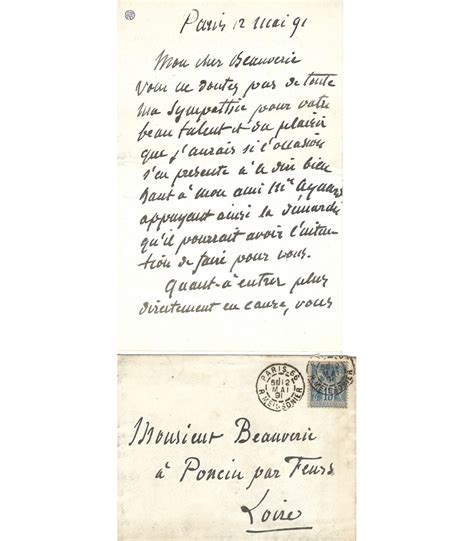 Paris 12 Mai 91
Mon cher Beauverie
Vous ne doutez pas de toute
ma sympathie pour votre
beau talent et du plaisir
que j'aurais si l'occasion
s'en presente à le dire bien
haut à mon ami Mr Aynard
appuyant ainsi la démarche
qu'il pourrait avoir l'inten-
tion de faire pour vous.
Quant à entrer plus
directement en cause, vous
PARIS 66
12
MAI
91
R. MEISSONIER
R. MEISSONIER
15
Monsieur Beauverie
à Poncin par Feurs
Loire